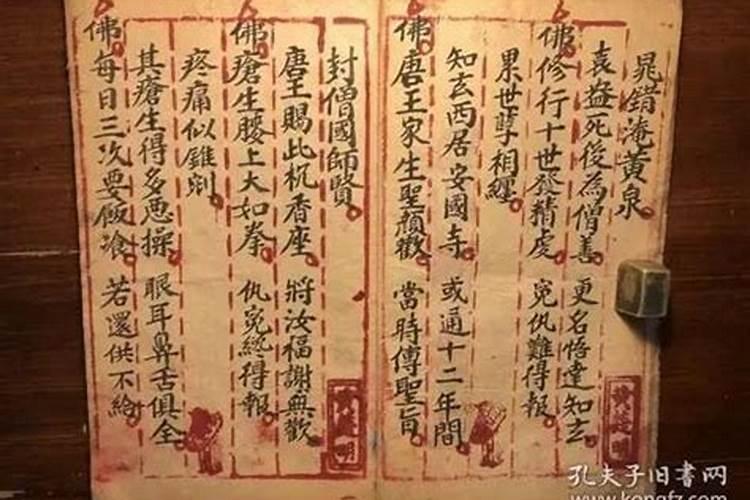 晁錯淹黃泉
袁盎死後為僧善 更名悟達知玄
佛 修行十世發精虔 冤仇難得報
累世孽相纏
知玄西居安國寺 或通十二年間
佛 唐王家生聖顏歡 當時傳聖旨
封僧國師賢
唐王賜此杌香座 將汝福謝無歡
佛 瘡生腰上大如拳 仇冤終得報
疼痛似錐剜
其瘡生得多恶操 眼耳鼻舌俱全
佛 每日三次要飯飡 若還供不給
孔夫子旧書网